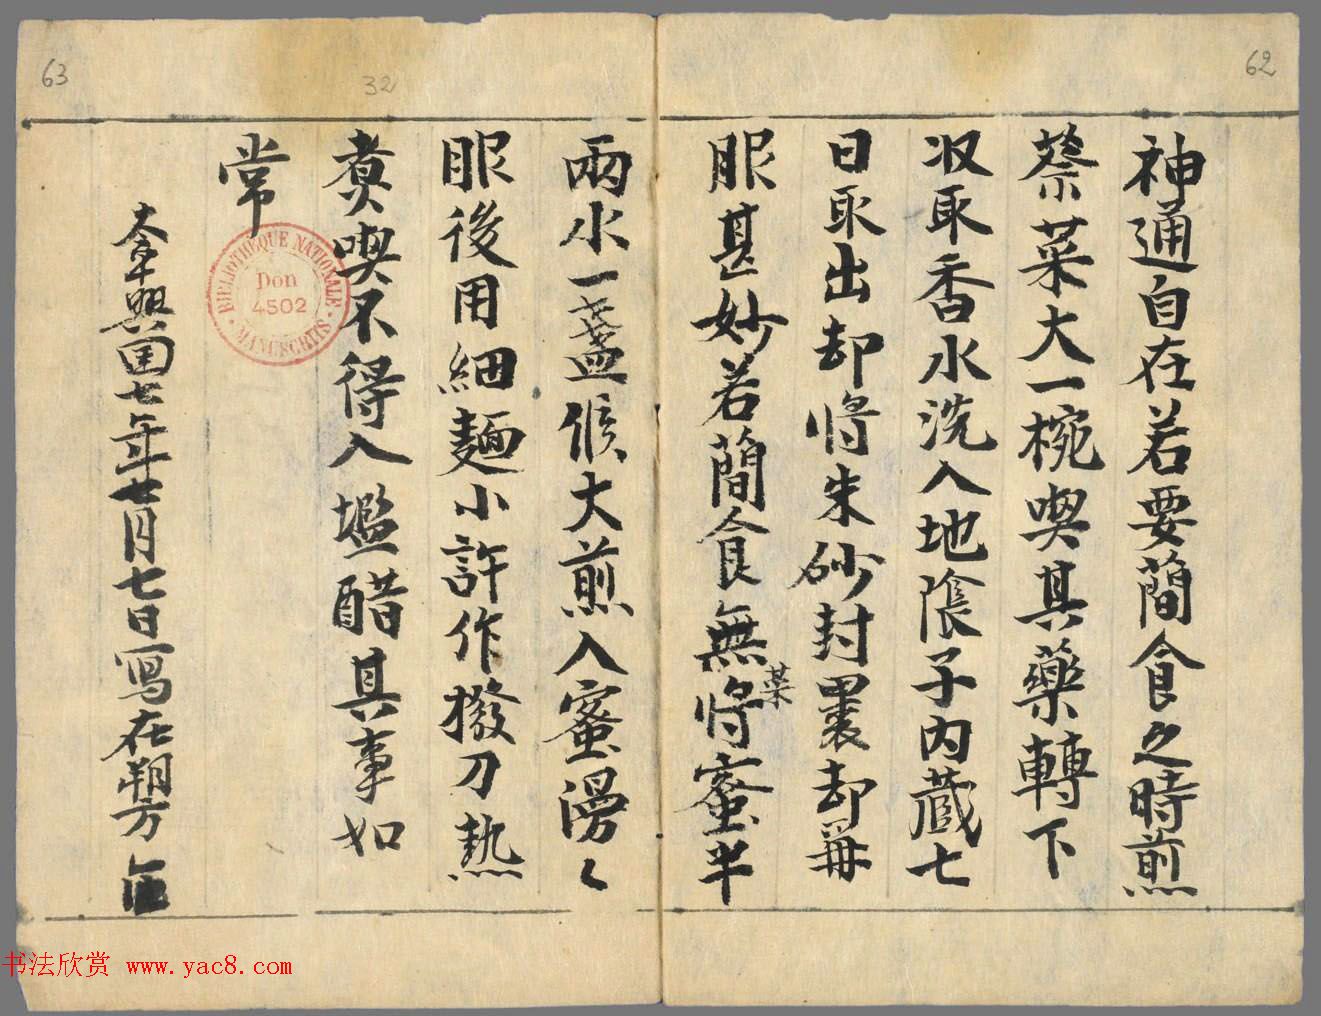 62
神通自在若要蕳食之時煎
蔡菜大一椀喫其藥轉下
収取香水洗入地隂子内蔵七
日取出却將朱砂封裹却毎
服甚妙若蕳食無將蜜半
菜
63
32
兩水一盞候大煎入蜜漫〻
服後用細麺小許作撥刀熱
煑喫不得入塩醋其事如
常
太平興国七年七月七日寫在朔方
BIBLIOTHÈQUE NATIONALE
Don
4502
MANUSCRITS
书法欣赏 www.yac8.com